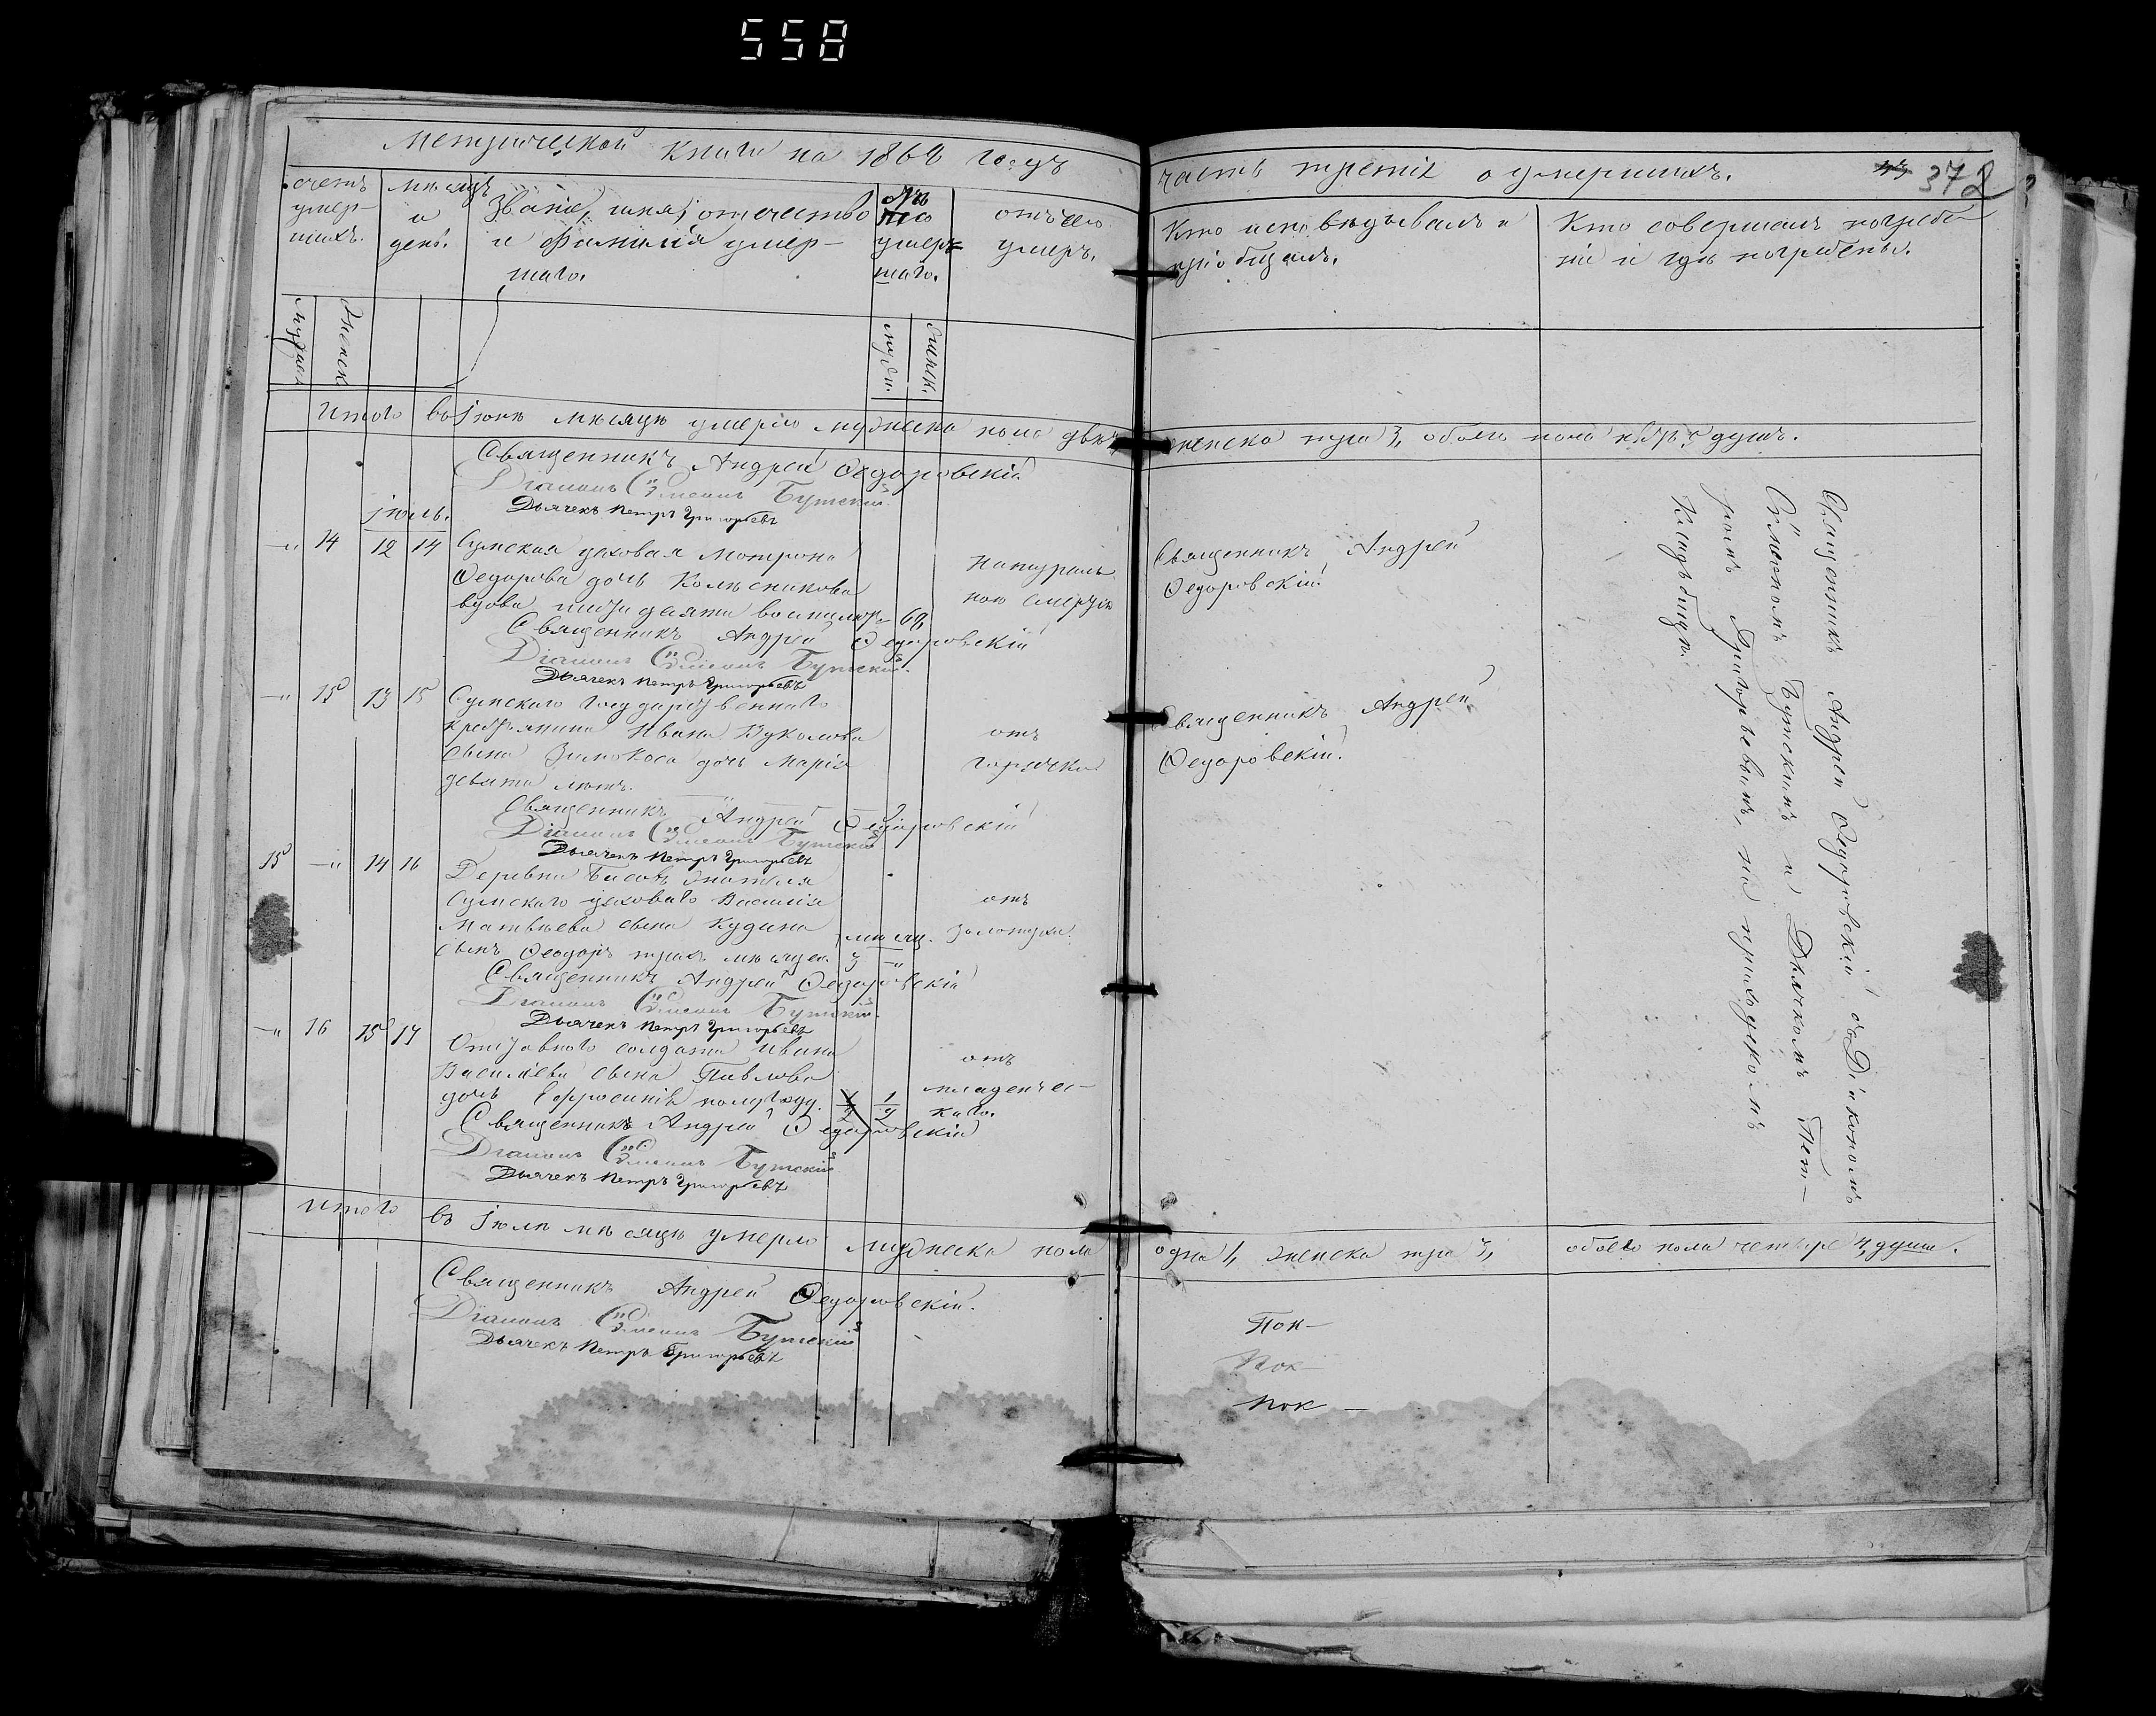 558
Метрической книги на 1868 годъ
часть третія о умершихъ.
372
счетъ умер-
шихъ.
мѣсяцъ
и
день.
Званіе, имя, отчество
и фамилія умер-
шаго.
Лѣта
умер-
шаго.
отъ чего
умеръ.
Кто исповѣдывалъ и
пріобщалъ.
Кто совершалъ погребе-
ніе и гдѣ погребены.
мужеска
женск
муж.
женск.
Итого въ Іюнѣ мѣсяцѣ умерло мужеска пола два,
женска три 3, обоего пола душъ.
Священникъ Андрей Ѳедоровскій
Діаконъ Сѵмеонъ Бутскій
Дьячекъ Петръ Григорьевъ
Іюль.
—„ 14 12 14 Сумская цеховая Мотрона
Ѳедорова дочь Колѣсникова
вдова шестидесяти восьми лѣтъ — 68
натураль-
ною смертію
Священникъ Андрей
Ѳедоровскій
Священникъ Андрей Ѳедоровскій
Діаконъ Сѵмеонъ Бутскій
Дьячекъ Петръ Григорьевъ
—„ 15 13 15 Сумскаго государственнаго
крестьянина Ивана Вуколова
сына Зимокоса дочь Марія
девяти лѣтъ.
отъ
горячки
Священникъ Андрей
Ѳедоровскій.
Священникъ Андрей Ѳедоровскій
Діаконъ Сѵмеонъ Бутскій
Дьячекъ Петръ Григорьевъ
15 —„ 14 16 Деревни жителя
Сумскаго цеховаго Василія
Матвѣева сына Кудина
сынъ Ѳеодоръ трехъ мѣсяцев.
мѣсяц.
3 „
отъ
золотухи.
Священникъ Андрей Ѳедоровскій
Діаконъ Сѵмеонъ Бутскій
Дьячекъ Петръ Григорьевъ
—„ 16 15 17 Отставнаго солдата Ивана
Васильева сына Павлова
дочь Ефросинія полугода. 1/2 1/2
отъ
младенчес-
каго.
Священникъ Андрей Ѳедоровскій
Діаконъ Сѵмеонъ Бутскій
Дьячекъ Петръ Григорьевъ
Священникъ Андрей Ѳедоровскій съ Діакономъ
Сѵмеономъ Бутскимъ и Дьячкомъ Пет-
ромъ Григорьевымъ, на приходскомъ
кладбищѣ.
Итого въ Іюлѣ мѣсяцѣ умерло мужеска пола
одна 1, женска три 3, обоего пола четыре 4, души.
Священникъ Андрей Ѳедоровскій.
Діаконъ Сѵмеонъ Бутскій
Дьячекъ Петръ Григорьевъ
Пок—
Пок—
Пок—